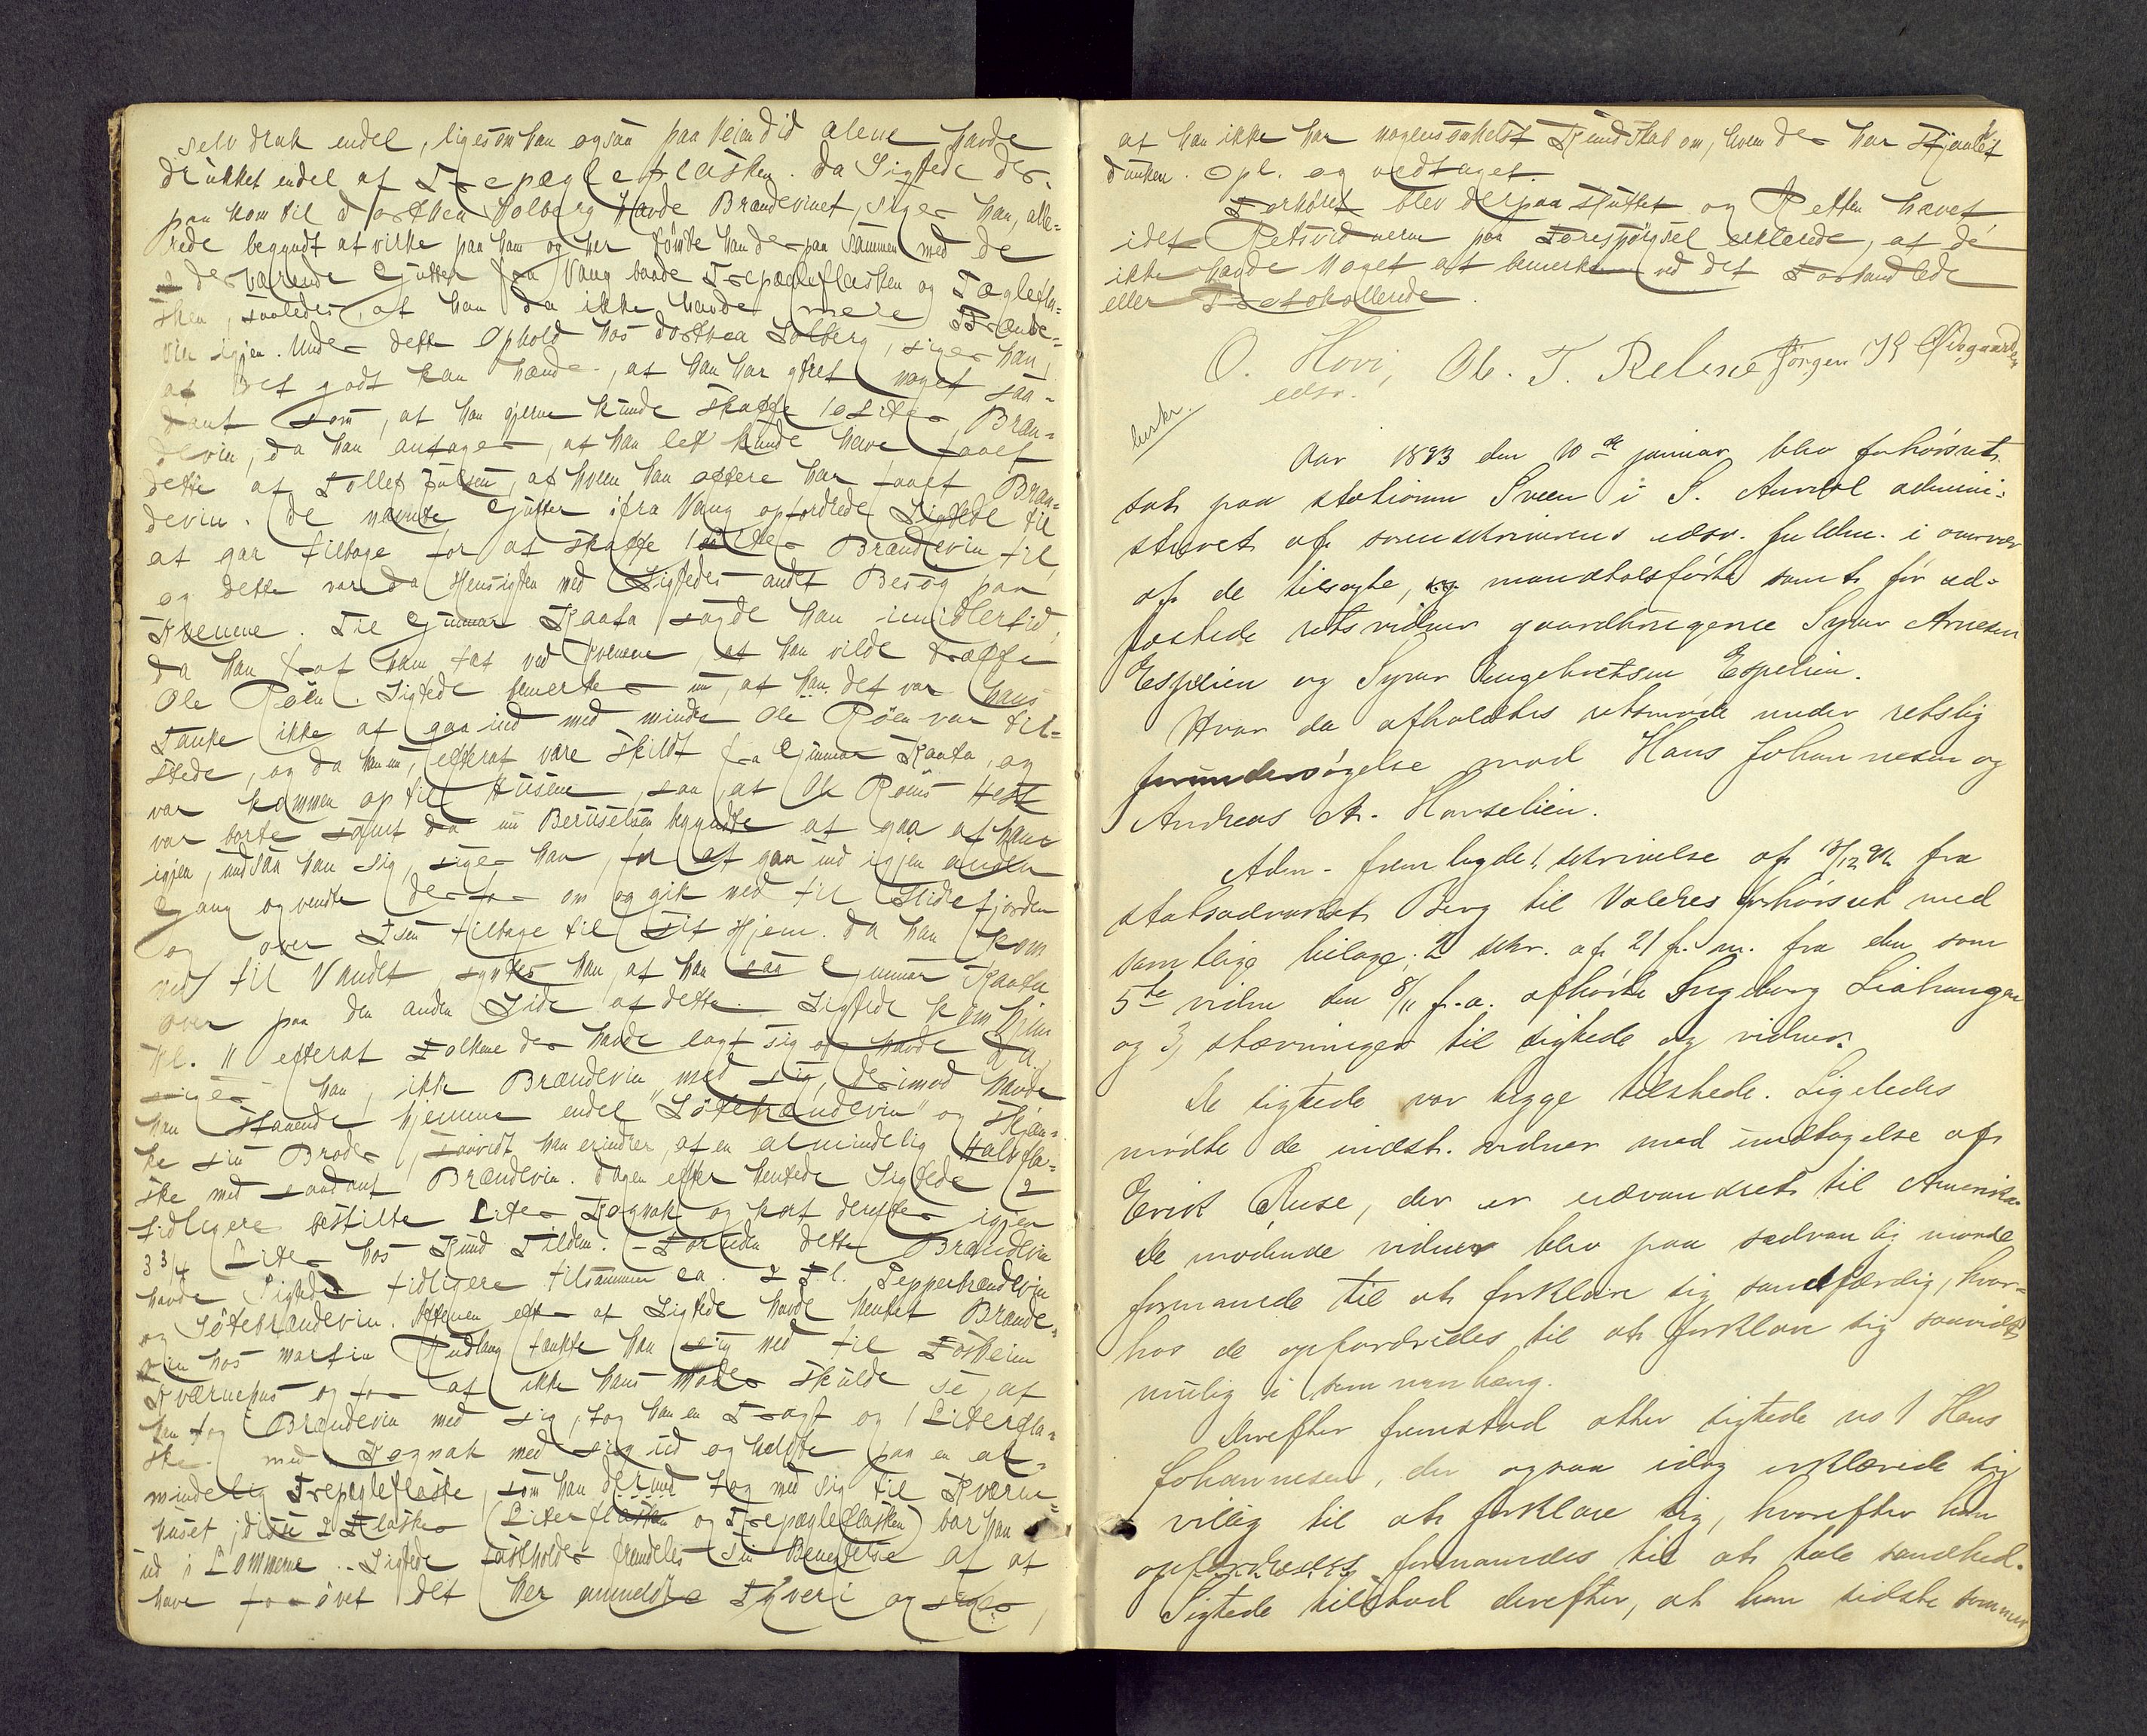 selv drak endel, ligesom han ogsaa paa Veien did alene havde
drukket endel af Trepægleflasken. Da Sigtede der-
paa kom til Dorthea Solberg havde Brændevinet, siger han, alle-
rede begyndt at virke paa ham og her tømte han derpaa sammen med de
2 derværende Gutter fra Vang baade Trepægleflasken og Pæglefla-
sken, saaledes, at han da ikke havde mere Brænde-
vin igjen. Under dette Ophold hos Dorthea Solberg, siger han,
at det godt kan hænde, at han har ytret noget saa-
dant som, at han gjerne kunde skaffe 10 Liter Bræn-
devin, da han antager, at han let kunde have faaet
dette af Tollef Julsen, af hvem han oftere har faaet Bræn-
devin. De nævnte Gutter ifra Vang opfordrede Sigtede til
at gaa tilbage for at skaffe 10 Liter Brændevin til,
og dette var da Hensigten med Sigtedes andet Besøg paa
Kvenne. Til Gunnar Kaata sagde han imidlertid,
da han traf ham tæt ved Kvenne, at han vilde træffe
Ole Røen. Sigtede bemerker nu, at det var hans
Tanke ikke at gaa ind med mindre Ole Røen var til-
stede, og da han nu, efterat være skildt fra Gunnar Kaata, og
var kommen op til Husene, saa, at Ole Røens Hest
var borte samt da nu Beruselsen begyndte at gaa af ham
igjen, undsaa han sig, siger han, for at gaa ind igjen anden
Gang og vendte derfor om og gik ned til Slidefjorden
og over Isen tilbage til sit Hjem. Da han kom
ned til Vandet syntes han, at han saa Gunnar Kaata
over paa den anden Side af dette. Sigtede kom hjem
Kl. 11 efterat Folkene der havde lagt sig og havde da,
siger han, ikke Brændevin med sig, derimod havde
han staaende hjemme endel "Søtebrændevin" og skjæn-
ke sin Broder, saavidt han erindrer, af en almindelig Halvfla-
ske med saadant Brændevin. Dagen efter hentede Sigtede 2
tidligere bestilte Liter Kognak og kort derefter igjen
3 3/4 Liter hos Knud Tildem. – Foruden dette Brændevin
havde Sigtede tidligere tilsammen ca. 2 Fl. Pepperbrændevin
og Søtebrændevin. Aftenen efter at Sigtede havde hentet Brænde-
vin hos Martin Rudlang tænkte han sig ned til Fosheim
Kværnehus og for at ikke hans Moder skulde se, at
han tog Brændevin med sig, tog han en Tragt og 1 Literfla-
ske med Kognak med sig ud og heldte paa en al-
mindelig Trepægleflaske, som han derund tog med sig til Kværne-
huset; disse 2 Flasker (Literflasken og Trepægleflasken) bar han
ud i Lommerne. Sigtede fastholder fremdeles sin Benegtelse af at
have forøvet det her anmeldte Tyveri og siger,
at han ikke har nogensomhelst Kundskab om, hvem der har stjaalet
Dunken. Opl. og vedtaget.
Forhøret blev derpaa sluttet og Retten hævet
idet Retsvidnerne paa Forespørgsel erklerede, at de
ikke havde Noget at bemerke ved det Forhandlede
eller Protokollerede.
O. Hovi, Ol. T. Relesie Jørgen K Øisgaarden
edsv.
beskr.
Aar 1893 den 10de januar blev forhørsret
sat paa stationen Sveen i S. Aurdal admini-
streret af sorenskriverens edsv. fuldm. i overvær
af de tilsagte, mandtalsførte samt før ed-
fæstede retsvidner gaardbrugerne Syver Arnesen
Espelien og Syver Engebretsen Espelien.
Hvor da afholdtes retsmøde under retslig
forundersøgelse mod Hans Johannesen og
Andreas A. Haraelien.
Adm. fremlagde 1, skrivelse af 13/12 92 fra
statsadvokat Berg til Valdres forhørsret med
samtlige bilage; 2 skr. af 21 f. m. fra den som
5te vidne den 8/11 f. a. afhørte Ingeborg Liahaugen
og 3, stævninger til sigtede og vidner.
De sigtede var begge tilstede. Ligeledes
mødte de indst. vidner med undtagelse af
Erik Ruse, der er udvandret til Amerika.
De mødende vidner blev paa sedvanlig maade
formanede til at forklare sig sandfærdig, hvor-
hos de opfordredes til at forklare sig saavidt
mulig i sammenhæng.
Derefter fremstod atter sigtede no 1 Hans
Johannesen, der ogsaa idag erklærede sig
villig til at forklare sig, hvorefter han
opfordredes formanedes til at tale sandhed.
Sigtede tilstod derefter, at han sidste sommer